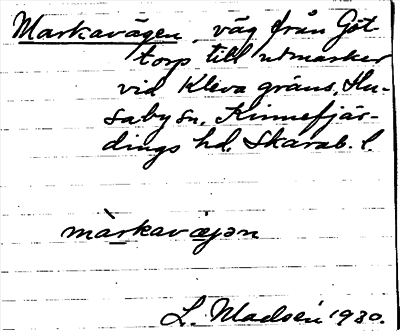 Markavägen, väg från Göt-
torp till utmarker
vid Kleva gräns, Hu-
saby sn, Kinnefjär-
dings hd. Skarab. l.
màrkavæ̀jən
L. Madsén 1930.